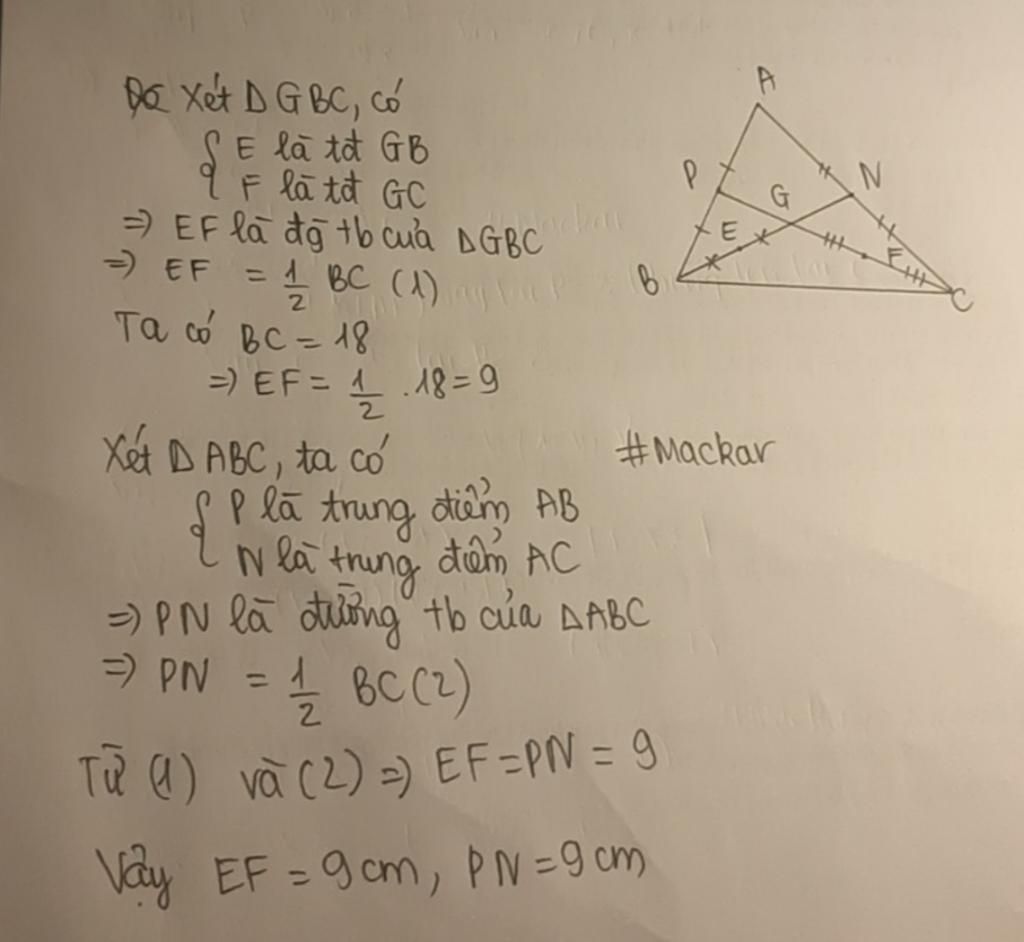 Xét ΔGBC, có
{ E là tđ GB
F là tđ GC
=> EF là đg tb của ΔGBC
=> EF = 1/2 BC (1)
Ta có BC = 18
=> EF = 1/2 . 18 = 9
Xét ΔABC, ta có
{ P là trung điểm AB
N là trung điểm AC
=> PN là đường tb của ΔABC
=> PN = 1/2 BC (2)
Từ (1) và (2) => EF = PN = 9
Vậy EF = 9 cm, PN = 9 cm
A
P
N
G
E
F
B
C
#Mackar